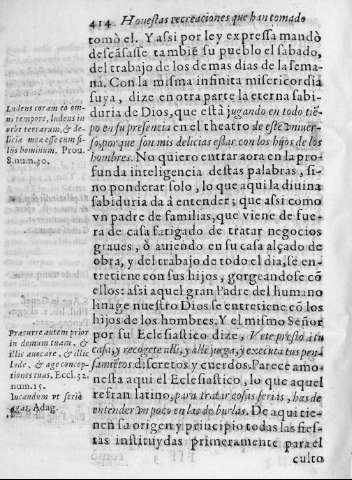 414 Honestas recreaciones que han tomado
tomò el. Y assi por ley expressa mandò
descãsasse tambiẽ su pueblo el sabado,
del trabajo de los demas dias de la sema
na. Con la misma infinita misericordia
suya, dize en otra parte la eterna sabi-
duria de Dios, que està jugando en todo tiẽ-
po en su presencia en el theatro de este vniuer-
so, porque son mis delicias estar con los hijos de los
hombres. No quiero entrar aora en la pro-
funda inteligencia destas palabras, si-
no ponderar solo, lo que aqui la diuina
sabiduria da à entender; que assi como
vn padre de familias, que viene de fue-
ra de casa fatigado de tratar negocios
graues, ò auiendo en su casa alçado de
obra, y del trabajo de todo el dia, se en-
tretiene con sus hijos, gorgeandose cõ
ellos: assi aquel gran Padre del humano
linage nuestro Dios se entretiene cõ los
hijos de los hombres. Y el mismo Señor
por su Eclesiastico dize, Vete presto à tu
casa, y recogete alli, y alli juega, y executa tus pen-
samiẽtos discretos y cuerdos. Parece amo-
nesta aqui el Eclesiastico, lo que aquel
refran latino, para tratar cosas serias, has de
entender vn poco en las de burlas. De aqui tie-
nen su origen y principio todas las fies-
tas instituydas primeramente para el
culto
Ludens coram eo om-
ni tempore, ludens in
orbe terrarum, & de-
liciæ meæ esse cum fi-
lijs hominum. Prou.
8. num. 30.
Præcurre autem prior
in domum tuam, &
illic auocare, & illic
lude, & age concep-
tiones tuas. Eccl. 32.
num. 15.
Iocandum vt seria
agas. Adag.